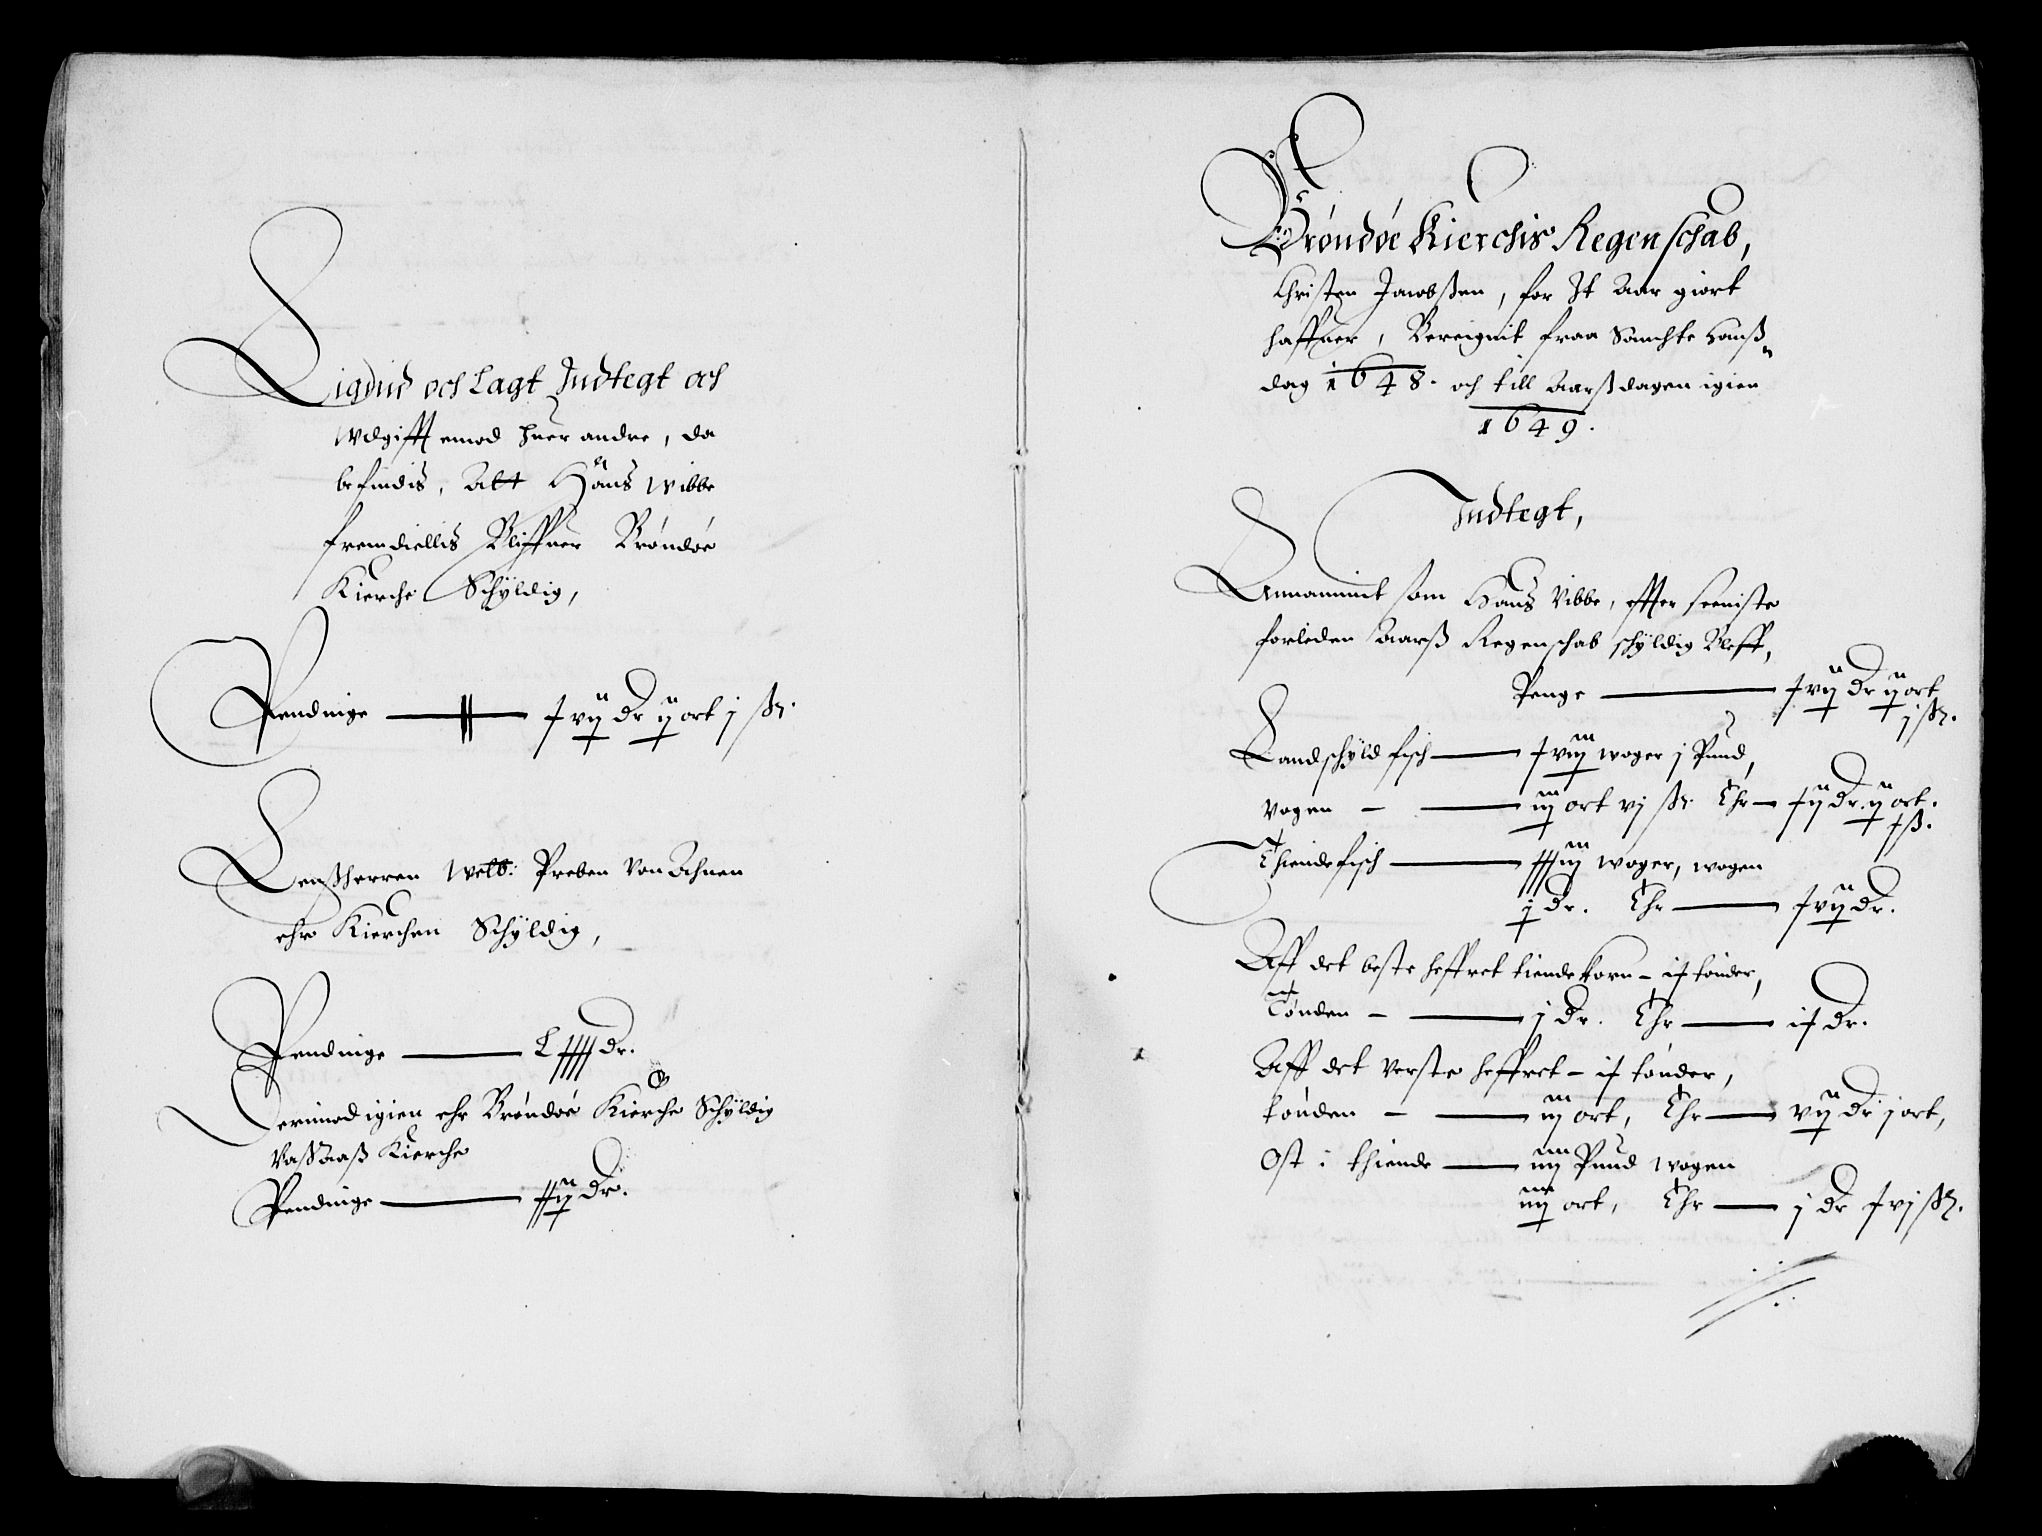 Ligduid och Lagt Indtegt och
Wdgifft emod huer andre, da
befindis, Att Hans Wibbe
fremdiellis Bliffuer Bröndøe
Kierche Schÿldig,
Pendinge — xvij Dr ij ort j ß.
Lenßherren Welb: Preben Von Ahnen
ehr Kierchen Schÿldig,
Pendinge — Lxxxx Dr.
Derimod igien ehr Bröndøe Kierche Schÿldig
Vaßaaß Kierche
Pendinge — xxij Dr.
Bröndøe Kierchis Regenschab,
Christen Jacobßen, for It Aar giort
haffuer, Bereignit fraa Sanchte Hanß
dag 1648. och till Aarßdagen igien
1649.
Indtegt,
Annammit som Hans Vibbe, effter seeniste
forleden Aarß Regenschab schÿldig Bleff,
Penge — xvij Dr ij ort
j ß.
Landschÿld fisch — xviij woger j Pund,
Vogen — iij ort vj ß. Ehr — xij Dr. ij ort.
x ß.
Thiende fisch — xxxiij woger, wogen
j Dr. Ehr — xvij Dr.
Aff det beste heffret tiende korn - ix tönder,
Tönden — j Dr. Ehr — ix Dr.
Aff det verste heffret - ix tönder,
tönden — iij ort, Ehr — vij Dr j ort,
Ost i thiende — iiij Pund wogen
iiij ort, Ehr — j Dr xvj ß.